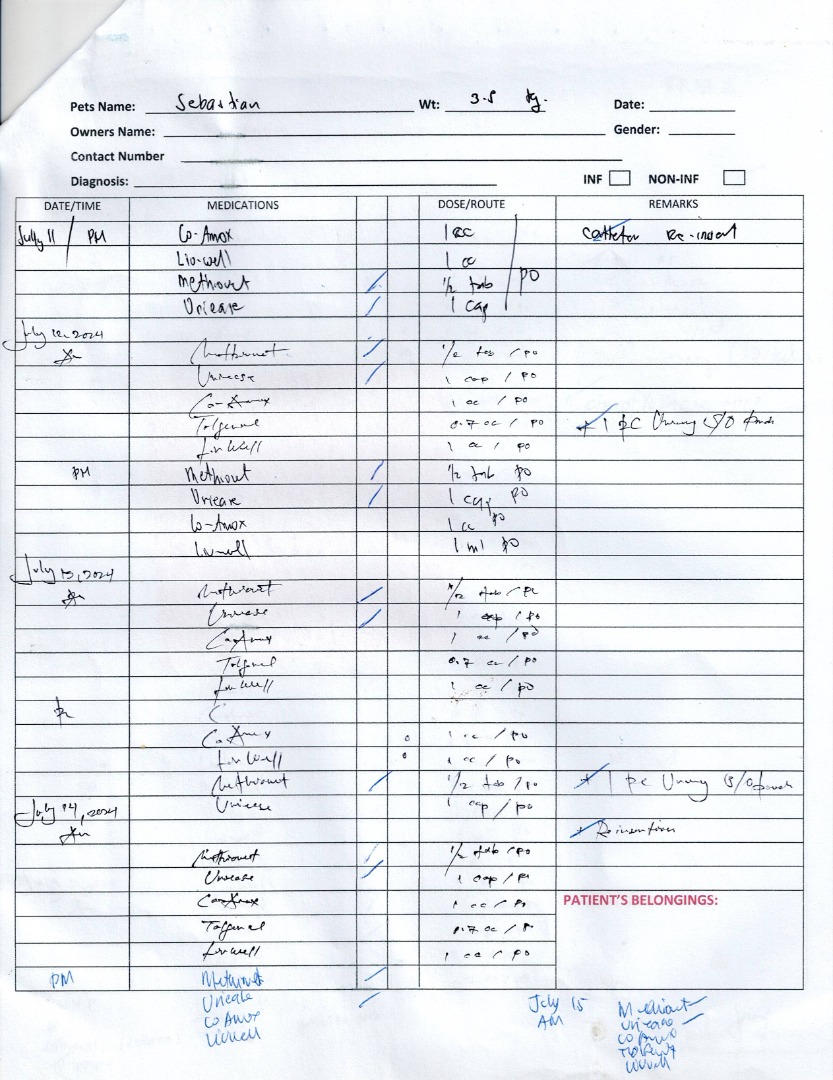 Pets Name: Sebastian Wt: 3.5 kg. Date:
Owners Name: Gender:
Contact Number
Diagnosis: INF NON-INF
DATE/TIME MEDICATIONS DOSE/ROUTE REMARKS
Jully 11 / PM Co-Amox 1 cc Re-insert
Liv-well 1 cc
Methiout 1/2 tab PO
Uriease 1 cap
July 12, 2024
Am 1/2 tab / PO
Uriease 1 cap / PO
Co-Amox 1 cc / PO
Tolfenol 0.7 cc / PO 1 pc
LivWell 1 cc / PO
PM Methiout 1/2 tab PO
Uriease 1 cap PO
Co-Amox 1 cc PO
Livwell 1 ml PO
July 13, 2024
Am Methiout 1/2 tab / PO
Uriease 1 cap / PO
Co-Amox 1 cc / PO
Tolfenol 0.7 cc / PO
LivWell 1 cc / PO
C
Co-Amox 1 cc / PO
LivWell 1 cc / PO
Methiout 1/2 tab / PO 1 pc
Uriease 1 cap / PO
July 14, 2024
Am
Methiout 1/2 tab / PO
Uriease 1 cap / PO
Co-Amox 1 cc / PO PATIENT'S BELONGINGS:
Tolfenol 0.7 cc / P
Livwell 1 cc / PO
PM Methiout
Uriease
Co Amox
Livwell
July 15
AM
Methiout
Uriease
Co Amox
Livwell